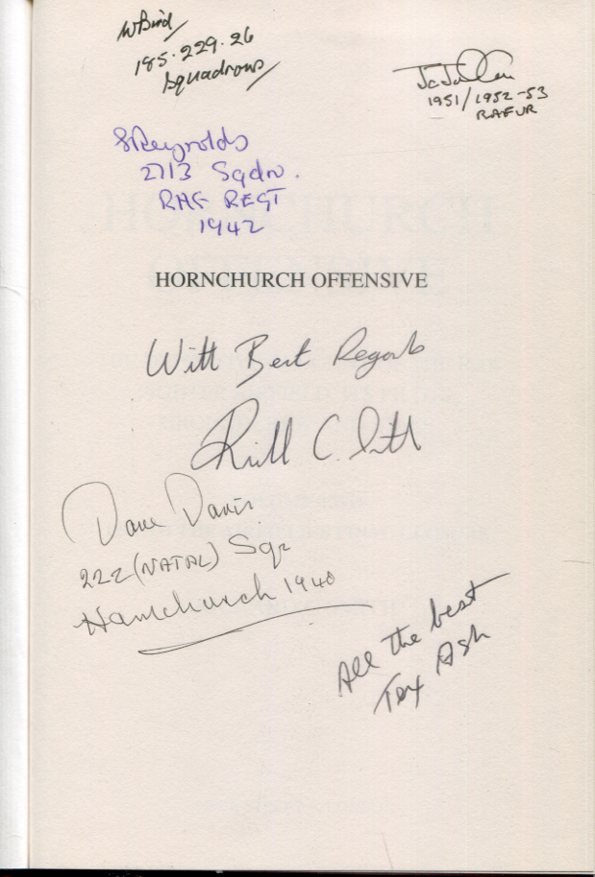 W Bird
185.229.26
Squadrons
1951/1952-53
RAFVR
S Reynolds
2713 Sqdn.
RAF REGT
1942
HORNCHURCH OFFENSIVE
With Best Regards
C. Smith
Dave Davis
222 (NATAL) Sqn
Hornchurch 1940
All the best
Tex Ash